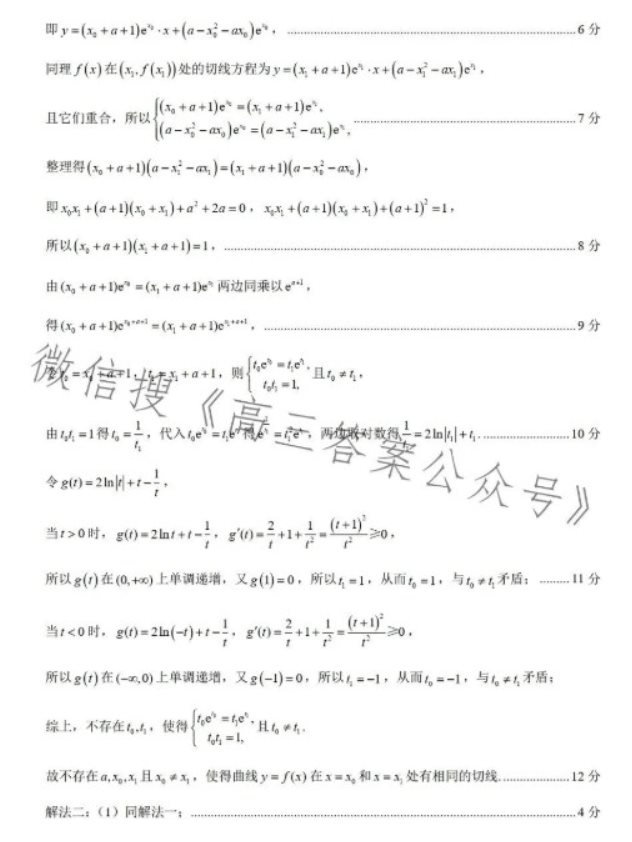 即 y=(x₀+a+1)e^{x₀}·x+(a-x₀²-ax₀)e^{x₀}，……6 分
同理 f(x) 在 (x₁,f(x₁)) 处的切线方程为 y=(x₁+a+1)e^{x₁}·x+(a-x₁²-ax₁)e^{x₁}，
且它们重合，所以 {(x₀+a+1)e^{x₀}=(x₁+a+1)e^{x₁}, (a-x₀²-ax₀)e^{x₀}=(a-x₁²-ax₁)e^{x₁}, ……7 分
整理得 (x₀+a+1)(a-x₁²-ax₁)=(x₁+a+1)(a-x₀²-ax₀)，
即 x₀x₁+(a+1)(x₀+x₁)+a²+2a=0，x₀x₁+(a+1)(x₀+x₁)+(a+1)²=1，
所以 (x₀+a+1)(x₁+a+1)=1，……8 分
由 (x₀+a+1)e^{x₀}=(x₁+a+1)e^{x₁} 两边同乘以 e^{a+1}，
得 (x₀+a+1)e^{x₀+a+1}=(x₁+a+1)e^{x₁+a+1}，……9 分
令 t₀=x₀+a+1，t₁=x₁+a+1，则 {t₀e^{t₀}=t₁e^{t₁}, t₀t₁=1, 且 t₀≠t₁，
由 t₀t₁=1 得 t₀=1/t₁，代入 t₀e^{t₀}=t₁e^{t₁} 得 两边取对数得 1/t₁=2ln|t₁|+t₁.……10 分
令 g(t)=2ln|t|+t-1/t，
当 t>0 时，g(t)=2lnt+t-1/t，g′(t)=2/t+1+1/t²=(t+1)²/t²≥0，
所以 g(t) 在 (0,+∞) 上单调递增，又 g(1)=0，所以 t₁=1，从而 t₀=1，与 t₀≠t₁ 矛盾；……11 分
当 t<0 时，g(t)=2ln(-t)+t-1/t，g′(t)=2/t+1+1/t²=(t+1)²/t²≥0，
所以 g(t) 在 (-∞,0) 上单调递增，又 g(-1)=0，所以 t₁=-1，从而 t₀=-1，与 t₀≠t₁ 矛盾；
综上，不存在 t₀,t₁，使得 {t₀e^{t₀}=t₁e^{t₁}, t₀t₁=1, 且 t₀≠t₁.
故不存在 a,x₀,x₁ 且 x₀≠x₁，使得曲线 y=f(x) 在 x=x₀ 和 x=x₁ 处有相同的切线.……12 分
解法二：（1）同解法一；……4 分
微信搜《高三答案公众号》